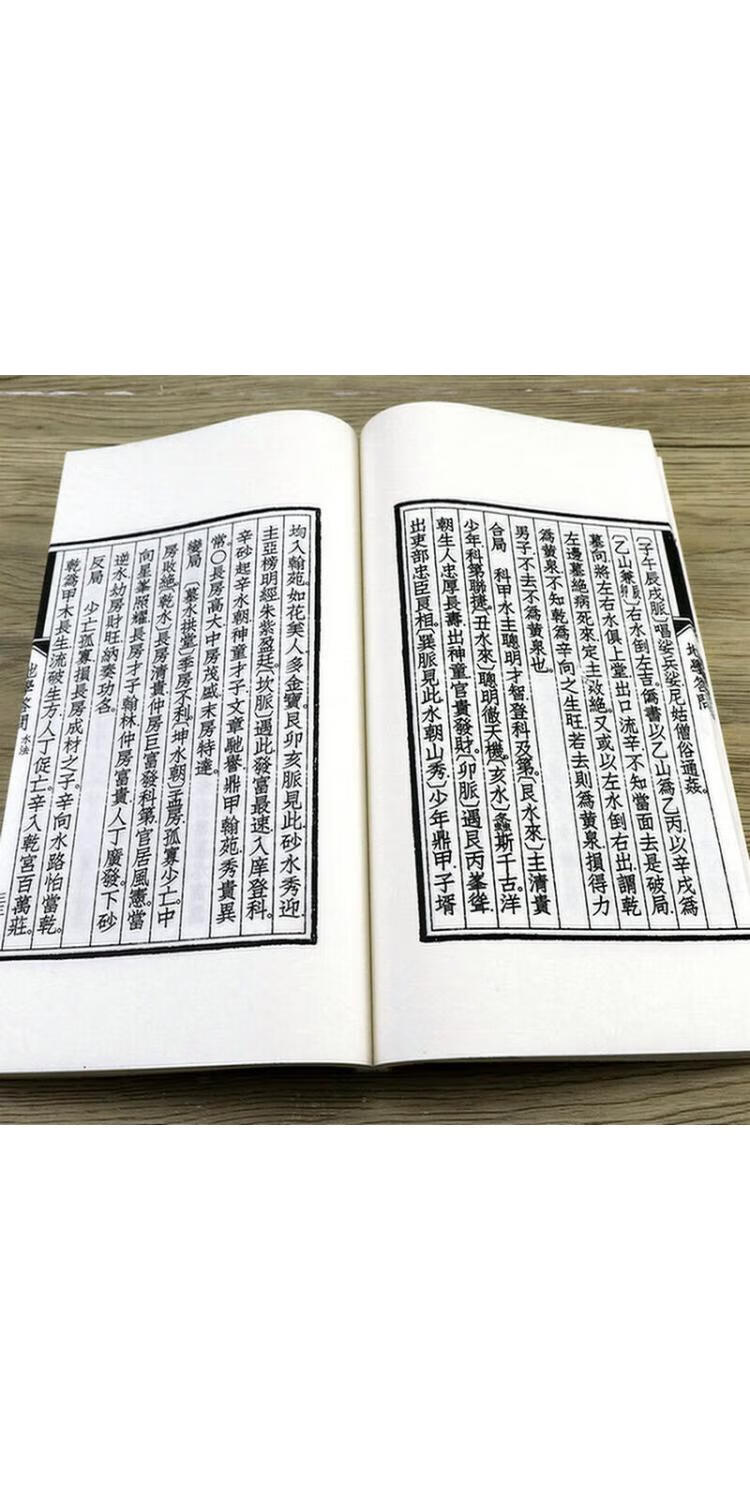 地學答問
〔子午辰戌脈〕唱娑兵娑尼姑僧俗通姦。
〔乙山兼卯辰〕右水倒左吉。僞書以乙山爲乙丙以辛戌爲
墓向將左右水俱上堂出口流辛不知當面去是破局
左邊墓絕病死來定主敗絕又或以左水倒右出謂乾
爲黃泉不知乾爲辛向之生旺若去則爲黃泉損得力
男子不去不爲黃泉也。
合局 科甲水主聰明才智登科及第。〔艮水來〕主清貴
少年科第聯捷。〔丑水來〕聰明徹天機。〔亥水〕螽斯千古。洋
朝生人忠厚長壽出神童官貴發財〔卯脈〕遇艮丙峯聳
出吏部忠臣良相。〔巽脈見此水朝山秀〕少年鼎甲子壻
均入翰苑。如花美人多金寶。艮卯亥脈見此砂水秀迎
主亞榜明經朱紫盈廷。〔坎脈〕遇此發富最速入庠登科。
辛砂起辛水朝神童才子文章馳譽鼎甲翰苑秀貴異
常。〇長房高大中房茂盛末房特達。
變局 〔墓水拱堂〕季房不利。〔坤水朝〕孟房孤寡少亡。中
房敗絕。〔乾水〕長房清貴仲房巨富發科第官居風憲。當
向星峯照耀長房才子翰林仲房富貴人丁廣發。下砂
逆水幼房財旺納奏功名。
反局 少亡孤寡損長房成材之子。辛向水路怕當乾。
乾爲甲木長生流破生方人丁促亡。辛入乾宮百萬莊。
地學答問 水法